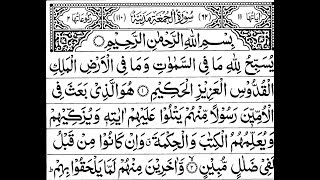 اٰيَاتُهَا ١١ (٦٢) سُوْرَةُ الْجُمُعَةِ مَدَنِيَّةٌ (١١٠) رُكُوْعَاتُهَا ٢
بِسْمِ اللّٰهِ الرَّحْمٰنِ الرَّحِيْمِ
يُسَبِّحُ لِلّٰهِ مَا فِى السَّمٰوٰتِ وَمَا فِى الْاَرْضِ الْمَلِكِ
الْقُدُّوْسِ الْعَزِيْزِ الْحَكِيْمِ ۝١ هُوَ الَّذِىْ بَعَثَ فِى
الْاُمِّيّٖنَ رَسُوْلًا مِّنْهُمْ يَتْلُوْا عَلَيْهِمْ اٰيٰتِهٖ وَيُزَكِّيْهِمْ
وَيُعَلِّمُهُمُ الْكِتٰبَ وَالْحِكْمَةَ وَاِنْ كَانُوْا مِنْ قَبْلُ
لَفِىْ ضَلٰلٍ مُّبِيْنٍ ۝٢ وَّاٰخَرِيْنَ مِنْهُمْ لَمَّا يَلْحَقُوْا بِهِمْ ط